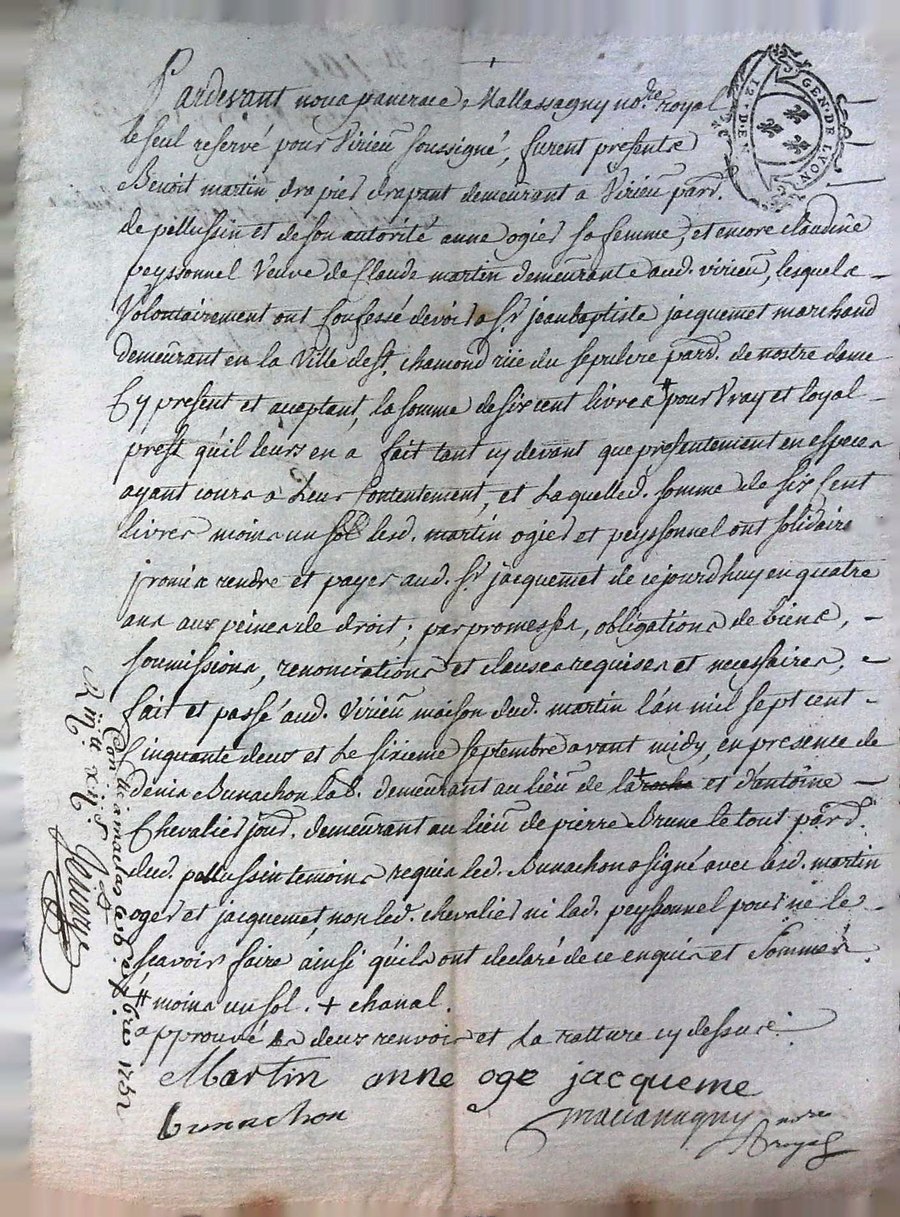 Pardevant nous pancrace Mallassagny no.re royal
le seul reservé pour Virieu soussigné, furent presents
Benoit martin drapier drapant demeurant a Virieu parr.
de pellussin et de son autorité anne ogier sa femme, et encore Claudine
peyssonnel Veuve de Claude martin demeurante aud. virieu, lesquels
Volontairement ont Confessé devoir a Sr. jean baptiste jacquemet marchand
demeurant en la Ville de St. chamond rüe du sepulcre parr. de nostre dame
Cy present et aceptant, la somme de six cent livres # pour Vray et loyal
prest qu'il leurs en a fait tant cy devant que presentement en especes
ayant cours a Leur Contentement, et Laquelled. somme de six Cent
livres moins un sol lesd. martin ogier et peyssonnel ont solidaire
promis rendre et payer aud. Sr. jacquemet de ce jourd'huy en quatre
ans aux peines de droit; par promesses, obligations de biens,
soumissions, renonciations et clauses requises et necessaires,
fait et passé aud. Virieu maison dud. martin l'an mil sept cent
Cinquante deux et Le sixieme septembre avant midy, en presence de
denis Bunachon lab. demeurant au lieu de la roche + et d'antoine
Chevalier jour. demeurant au lieu de pierre Brune le tout parr.
dud. pellussin temoins requis led. Bunachon a signé avec lesd. martin
oger et jacquemet, non led. chevalier ni lad. peyssonnel pour ne le
scavoir faire ainsi qu'ils ont declaré de ce enquis et Sommés.
# moins un sol. + chanal.
approuvé les deux renvois et La ratture cy dessus.
Martin anne oge jacqueme
bunachon
nore
royal
GEN. DE LYON
12. DEN
Con.lé a maclas le 6. 7bre 1752
R